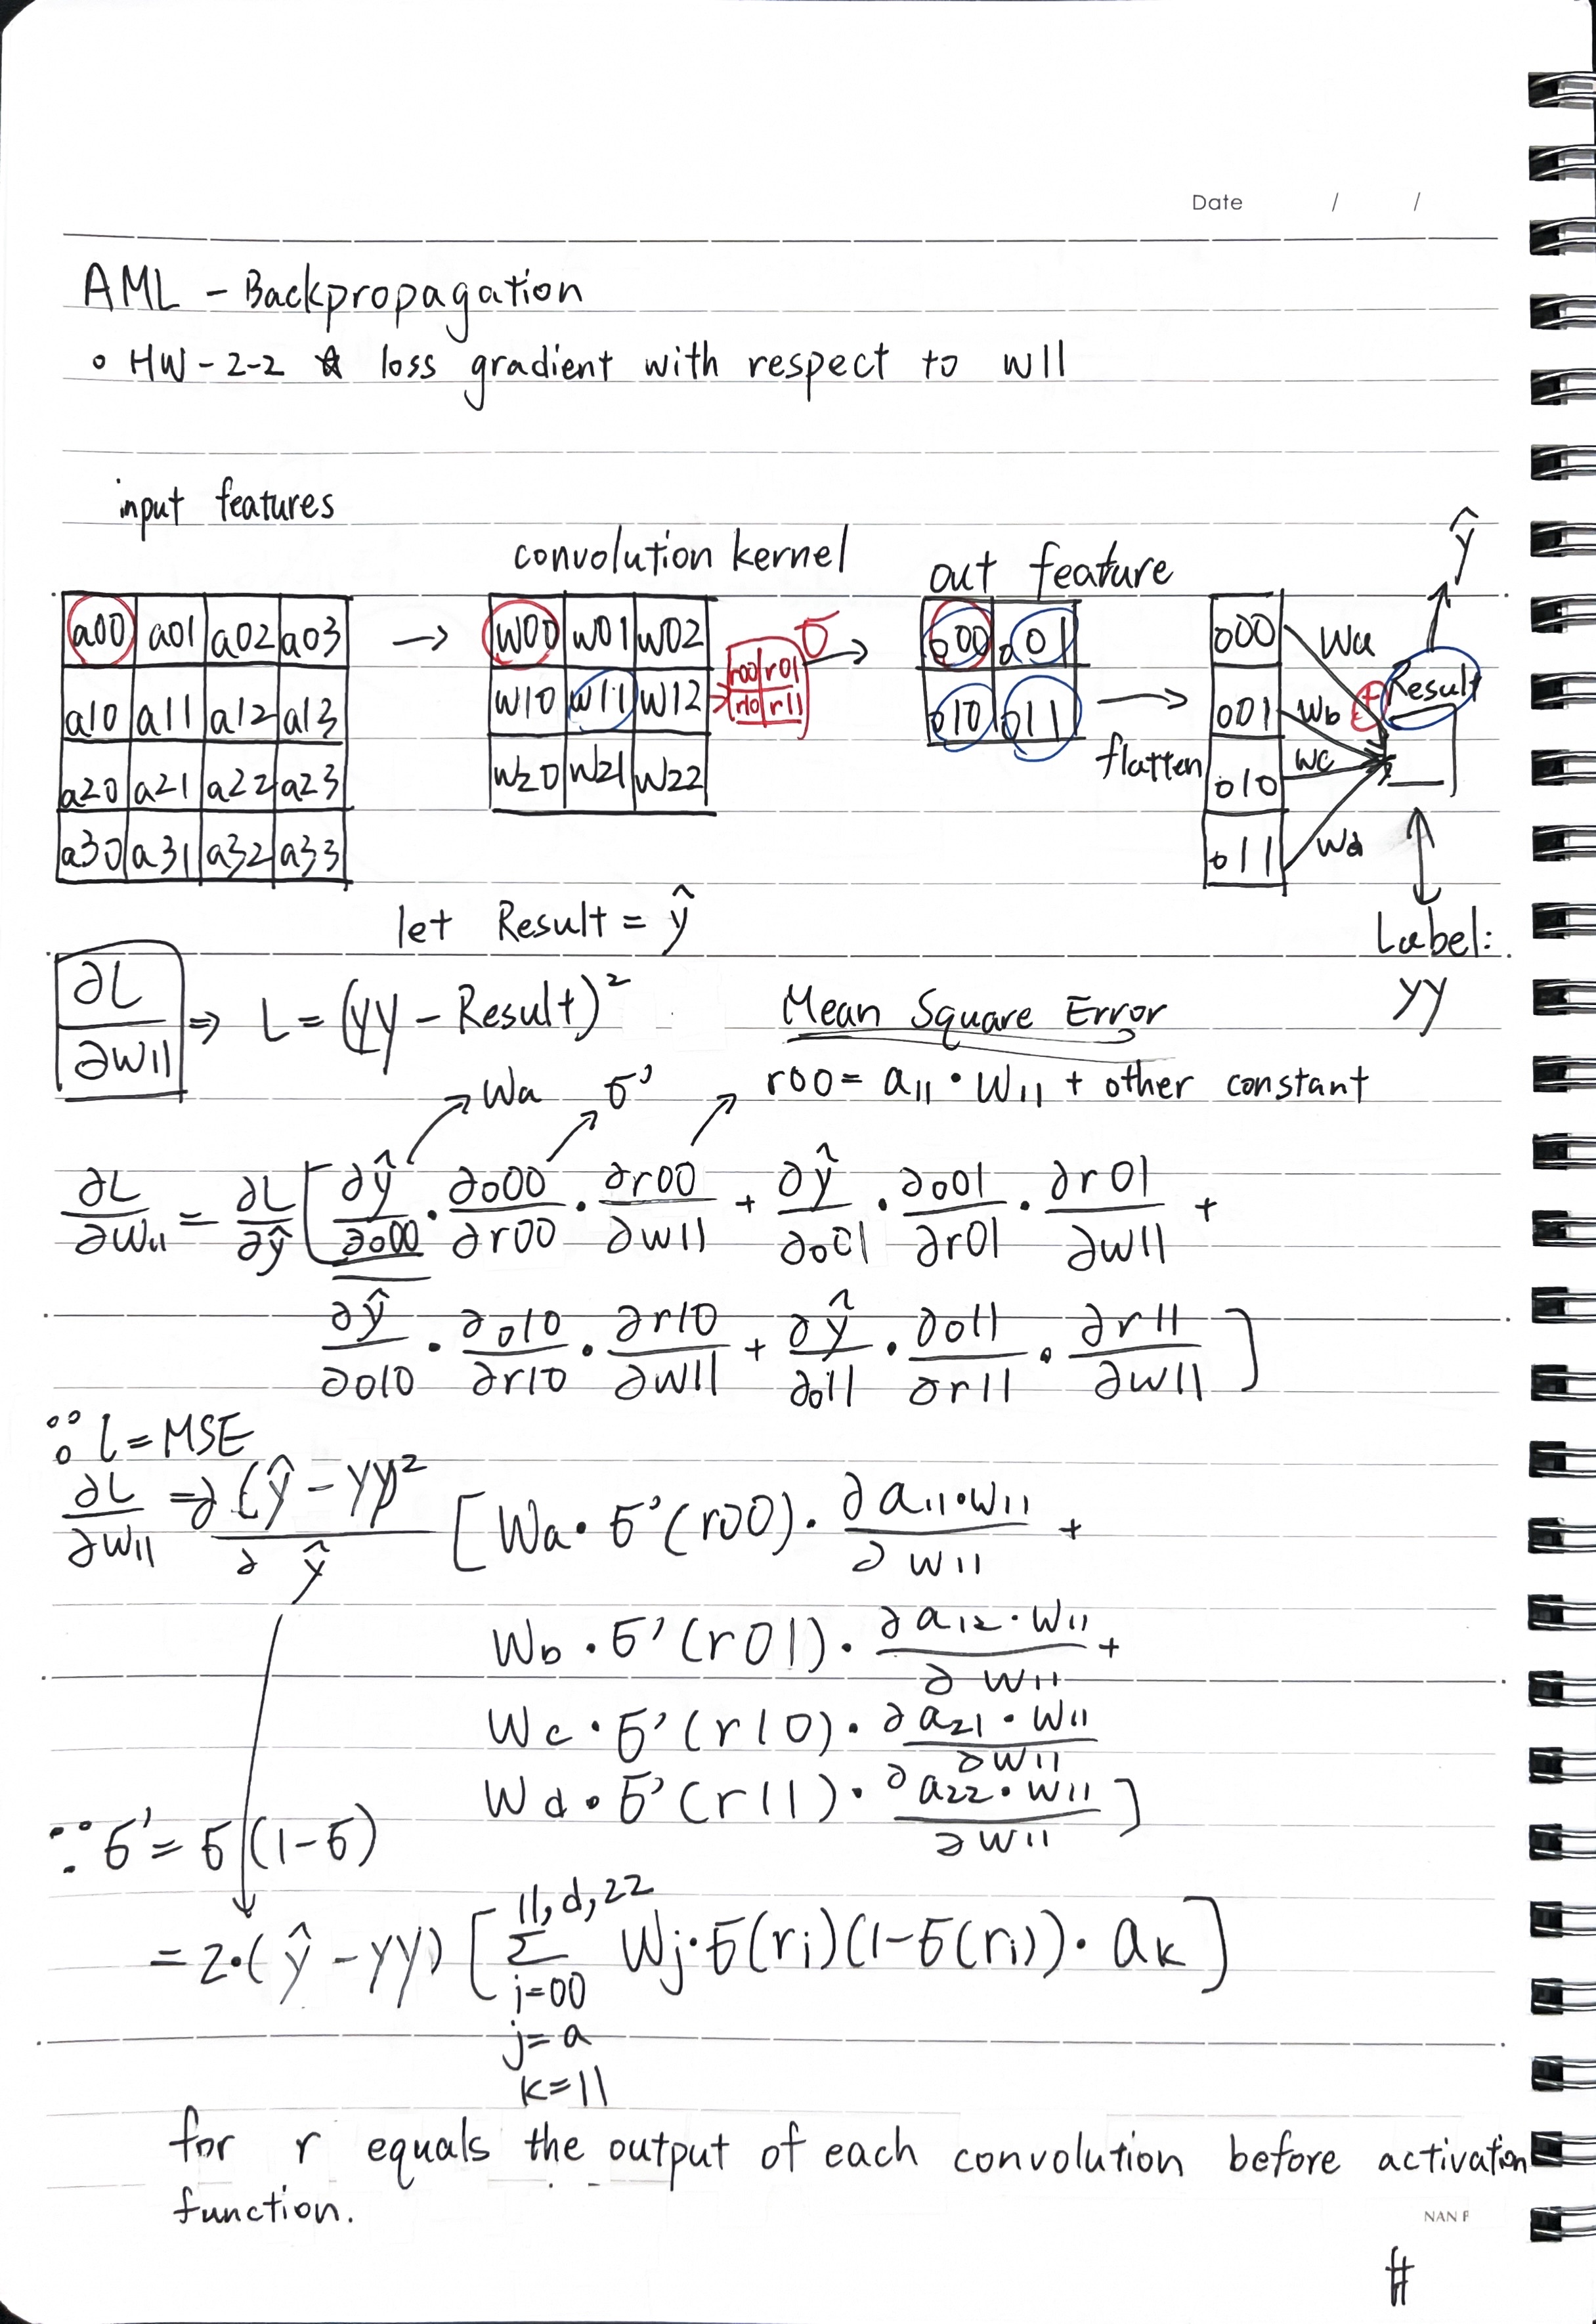 Date / /
AML - Backpropagation
• HW-2-2 ☆ loss gradient with respect to w11
input features
convolution kernel
out feature
ŷ
a00 a01 a02 a03
a10 a11 a12 a13
a20 a21 a22 a23
a30 a31 a32 a33
→
w00 w01 w02
w10 w11 w12
w20 w21 w22
r00 r01
r10 r11
σ →
o00 o01
o10 o11
→
flatten
o00
o01
o10
o11
Wa
Wb
Wc
Wd
Σ
Result
Label:
yy
let Result = ŷ
∂L/∂w11 ⇒ L = (yy - Result)² Mean Square Error
Wa σ' r00 = a11 · w11 + other constant
∂L/∂w11 = ∂L/∂ŷ [ ∂ŷ/∂o00 · ∂o00/∂r00 · ∂r00/∂w11 + ∂ŷ/∂o01 · ∂o01/∂r01 · ∂r01/∂w11 +
∂ŷ/∂o10 · ∂o10/∂r10 · ∂r10/∂w11 + ∂ŷ/∂o11 · ∂o11/∂r11 · ∂r11/∂w11 ]
∵ L = MSE
∂L/∂w11 ⇒ ∂(ŷ - yy)²/∂ŷ [ Wa · σ'(r00) · ∂a11·w11/∂w11 +
Wb · σ'(r01) · ∂a12·w11/∂w11 +
Wc · σ'(r10) · ∂a21·w11/∂w11
Wd · σ'(r11) · ∂a22·w11/∂w11 ]
∵ σ' = σ(1-σ)
11, d, 22
= 2·(ŷ - yy) [ Σ Wj·σ(ri)(1-σ(ri))· ak ]
i=00
j=a
k=11
for r equals the output of each convolution before activation
function.
NAN F
#